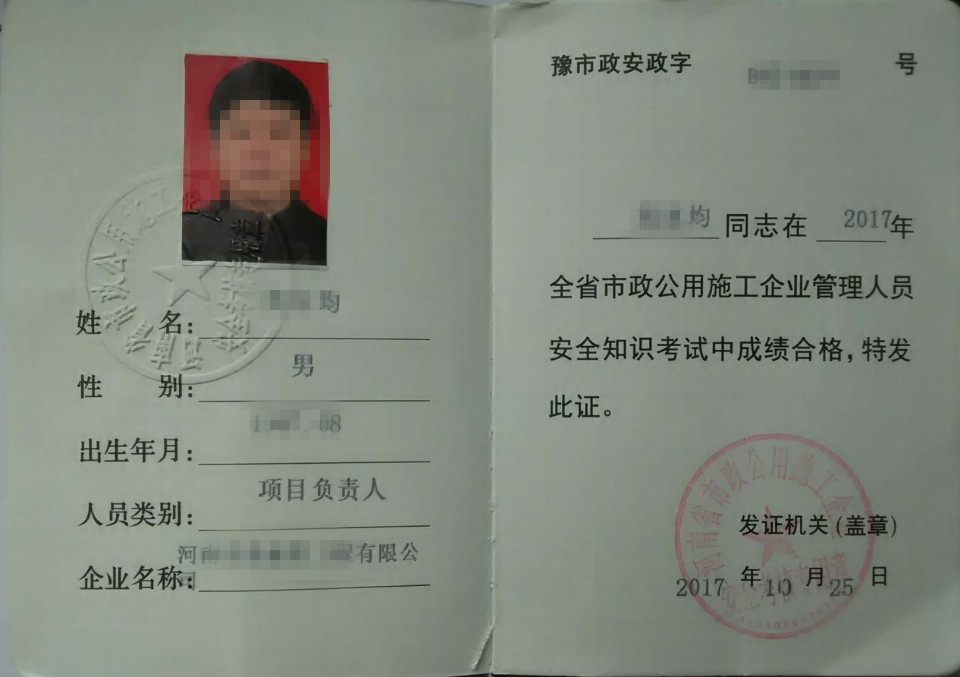 均
姓名：
男
性别：
08
出生年月：
项目负责人
人员类别：
河南
程有限公
企业名称：
司
豫市政安政字 号
均 同志在 2017年
全省市政公用施工企业管理人员
安全知识考试中成绩合格，特发
此证。
河南省市政公用施工企业
发证机关（盖章）
2017 年 10 月 25 日